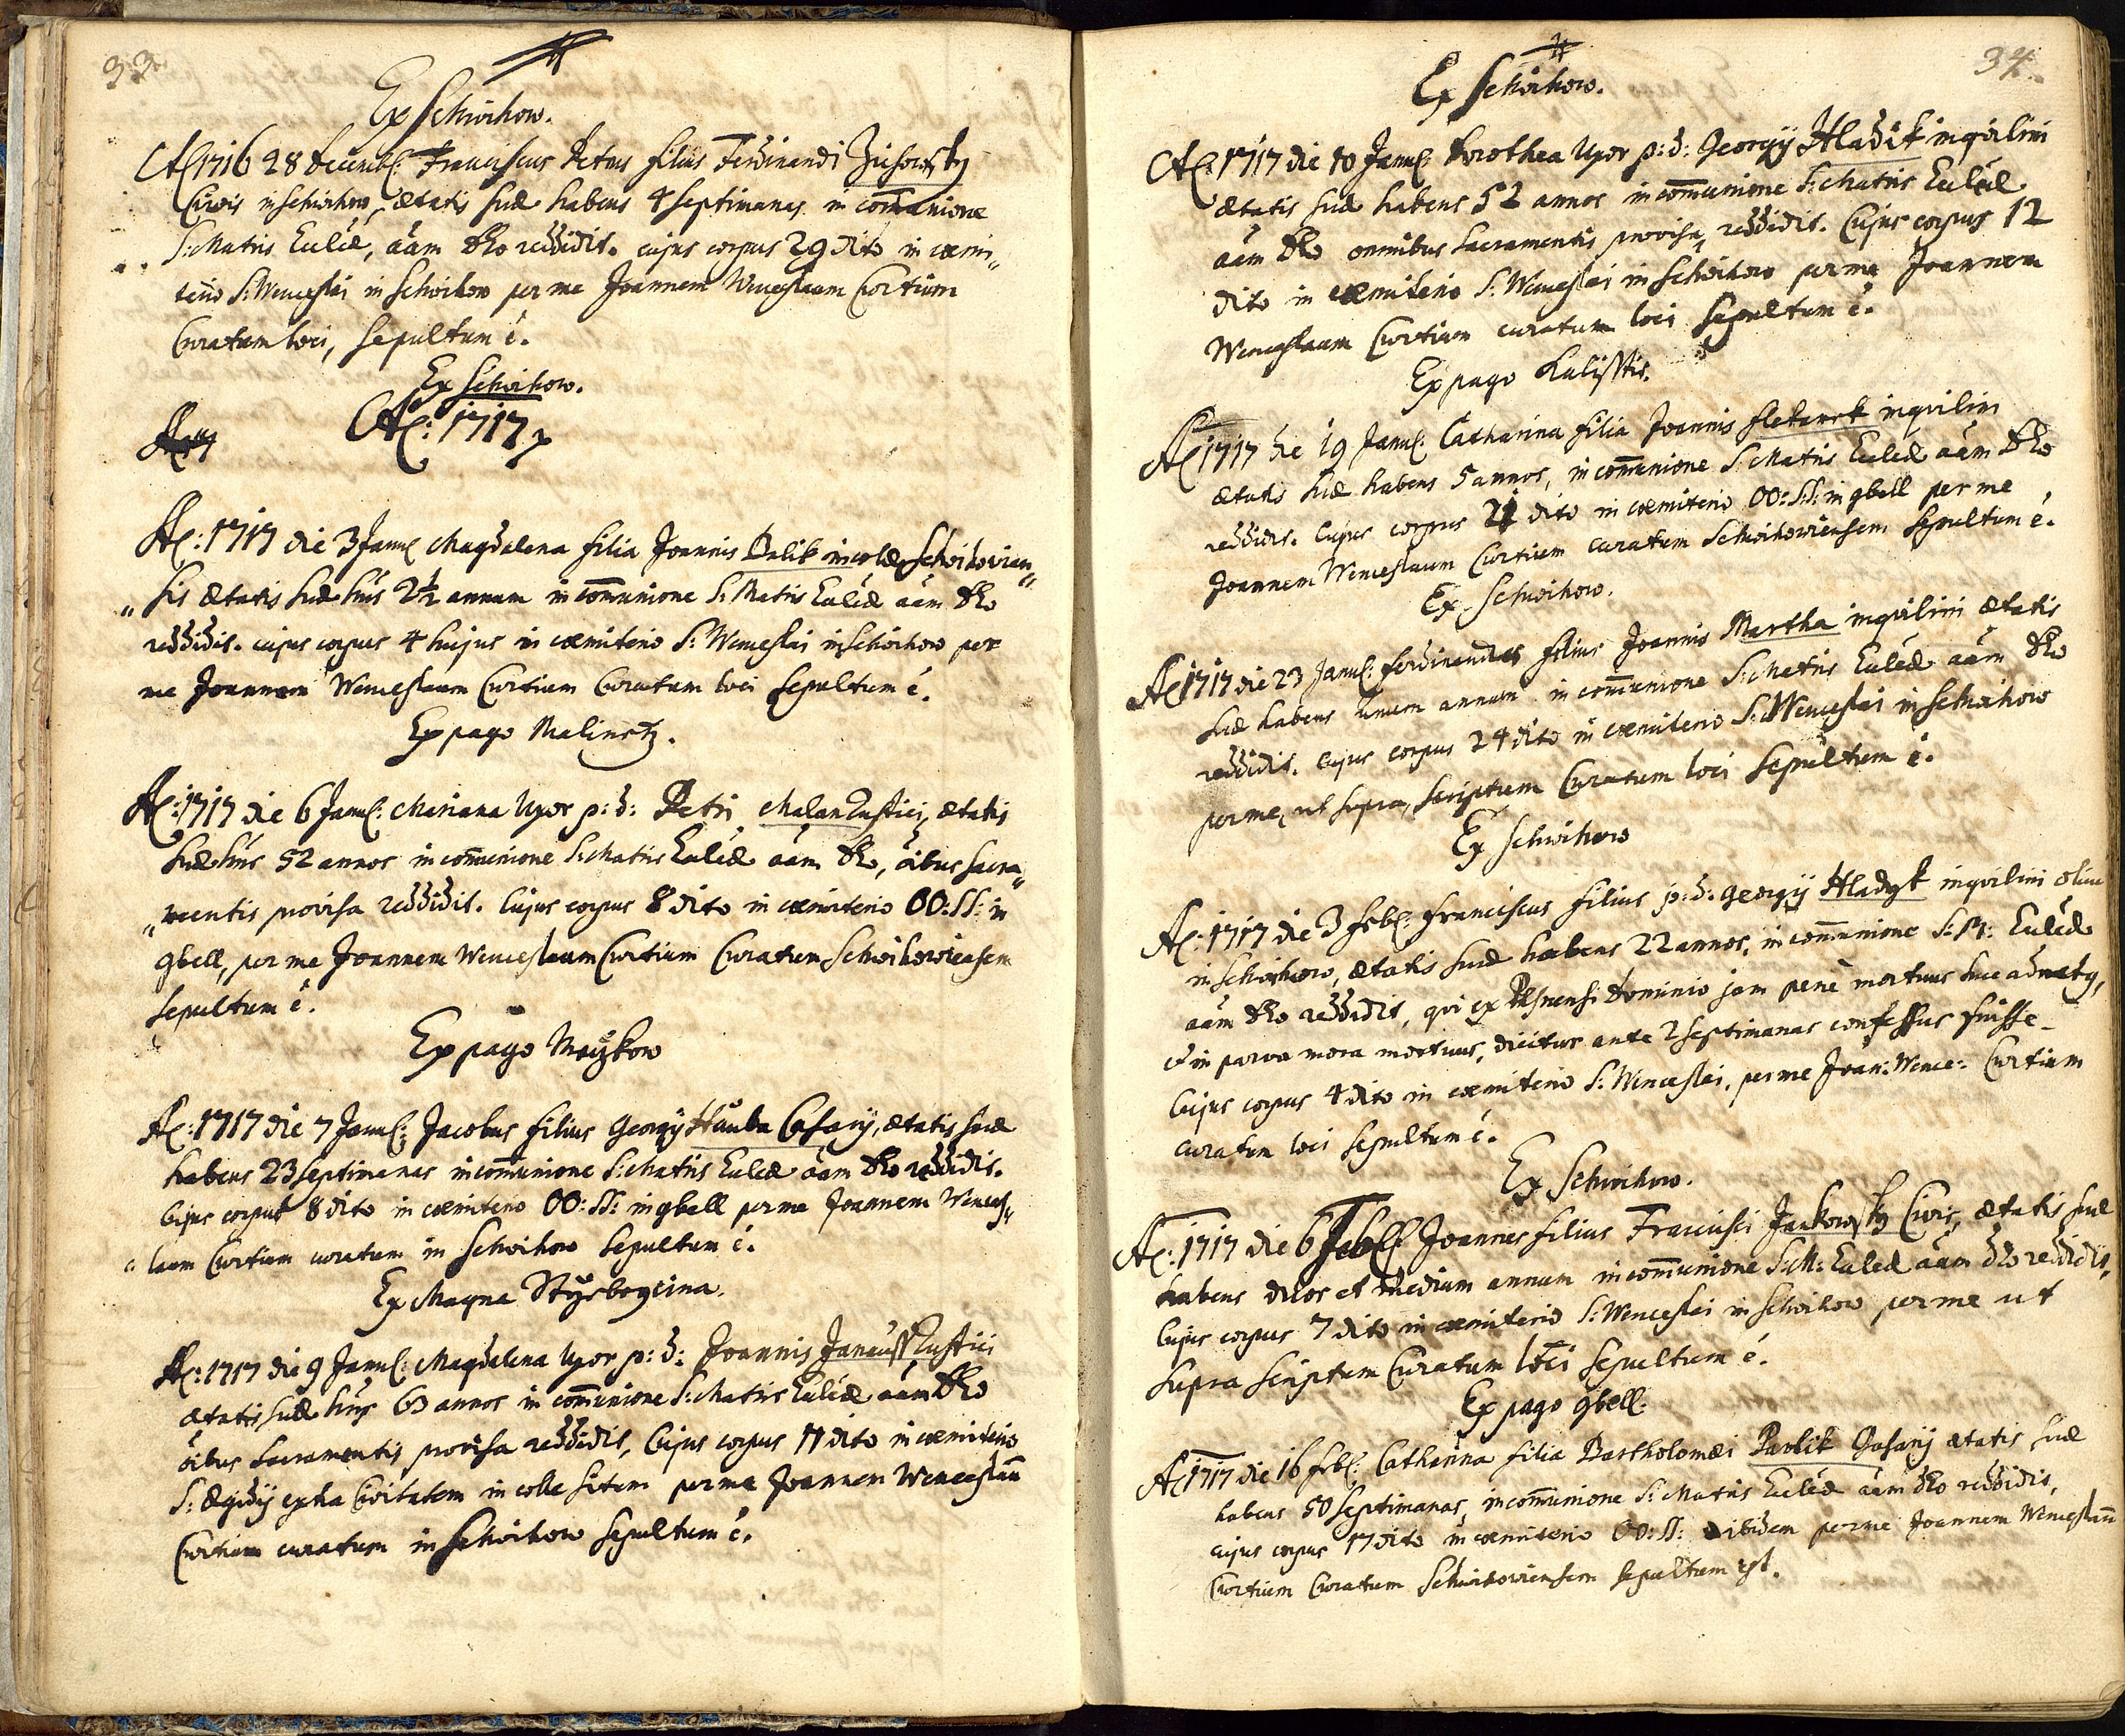 33
Ex Schwihow.
A͠o 1716 28 Decemb: Franciscus Petrus filius Ferdinandi Zichowsky
Civis in Schwihow, ætatis suæ habens 4 septimanas in com̄unione
S: Matris Eccl̄æ, aām Deo reddidit. cujus corpus 29 dito in cœmi„
terio S: Wenceslai in Schwihow per me Joannem Wenceslaum Curtium
Curatum loci, sepultum ē.
Ex Schwihow.
A͠o: 1717
A͠o: 1717 die 3 Janu: Magdalena filia Joannis Dalik incolæ Schwihovien„
„sis ætatis suæ hn̄s 2½ annum in com̄unione S: Matris Eccl̄æ aām Deo
reddidit. cujus corpus 4 hujus in cœmiterio S: Wenceslai in Schwihow per
me Joannem Wenceslaum Curtium Curatum loci sepultum ē.
Ex pago Malinetz.
A͠o: 1717 die 6 Janu: Mariana Uxor p: d: Petri Malan Rustici, ætatis
suæ hn̄s 52 annos in com̄unione S: Matris Eccl̄æ aām Deo, oībus sacra„
„mentis provisa reddidit. Cujus corpus 8 dito in cœmiterio OO: SS: in
gbell, per me Joannem Wenceslaum Curtium Curatum Schwihowiensem
sepultum ē.
Ex pago Mezkow
A͠o: 1717 die 7 Janu: Jacobus filius Georgij Hauba Casarij, ætatis suæ
habens 23 septimanas in com̄unione S: Matris Eccl̄æ aām Deo reddidit.
Cujus corpus 8 dito in cœmiterio OO: SS: in gbell per me Joannem Wences„
„laum Curtium curatum in Schwihow sepultum ē.
Ex Magna
A͠o: 1717 die 9 Janu: Magdalena Uxor p: d: Joannis Janauss Rustici
ætatis suæ hn̄s 63 annos in com̄unione S: Matris Eccl̄æ aām Deo
oībus Sacramentis provisa reddidit, Cujus corpus 11 dito in cœmiterio
S: Ægidij extra Civitatem in colle sitam per me Joannem Wenceslaū
Curtium curatum in Schwihow sepultum ē.
34
Ex Schwihow.
A͠o: 1717 die 10 Janu: Dorothea Uxor p: d: Georgij Hladik inquilini
ætatis suæ habens 52 annos in com̄unione S: Matris Eccl̄æ
aām Deo omnibus Sacramentis provisa, reddidit. Cujus corpus 12
dito in cœmiterio S: Wenceslai in Schwihow per me Joannem
Wenceslaum Curtium curatum loci sepultum ē.
Ex pago Kalisstis.
A͠o 1717 die 19 Janu: Catharina filia Joannis inquilini
ætatis suæ habens 5 annos, in com̄unione S: Matris Eccl̄æ aām Deo
reddidit. Cujus corpus 21 dito in cœmiterio OO: SS: in gbell per me
Joannem Wenceslaum Curtium curatum Schwihowiensem sepultum ē.
Ex Schwihow.
A͠o 1717 die 23 Janu: ferdinandus filius Joannis Martha inquilini ætatis
suæ habens unum annum in com̄unione S: Matris Eccl̄æ aām Deo
reddidit. Cujus corpus 24 dito in cœmiterio S: Wenceslai in Schwihow
per me, ut supra scriptum Curatum loci sepultum ē.
Ex Schwihow
A͠o: 1717 die 3 feb: franciscus filius p: d: georgij Hladyk inquilini olim
in Schwihow, ætatis suæ habens 22 annos, in com̄unione S: M: Eccl̄æ
aām Deo reddidit, qui ex Dominio jam penè mortuus huc
et in parva mora mortuus, dicitur ante 2 septimanas confessus fuisse.
Cujus corpus 4 dito in cœmiterio S: Wenceslai, per me Joan: Wence: Curtium
curatum loci sepultum ē.
Ex Schwihow.
A͠o: 1717 die 6 Feb: Joannes filius Francisci Jankowsky Civis, ætatis suæ
habens duos et medium annum in com̄unione S: M: Eccl̄æ aām Deo reddidit,
Cujus corpus 7 dito in cœmiterio S: Wenceslai in Schwihow per me ut
supra scriptum Curatum loci sepultum ē.
Ex pago gbell.
A͠o 1717 die 16 feb: Catharina filia Bartholomæi Pavlik Casarij ætatis suæ
habens 50 septimanas, in com̄unione S: Matris Eccl̄æ aām Deo reddidit,
cujus corpus 17 dito in cœmiterio OO: SS: ibidem per me Joannem Wenceslaū
Curtium Curatum Schwihoviensem sepultum est.